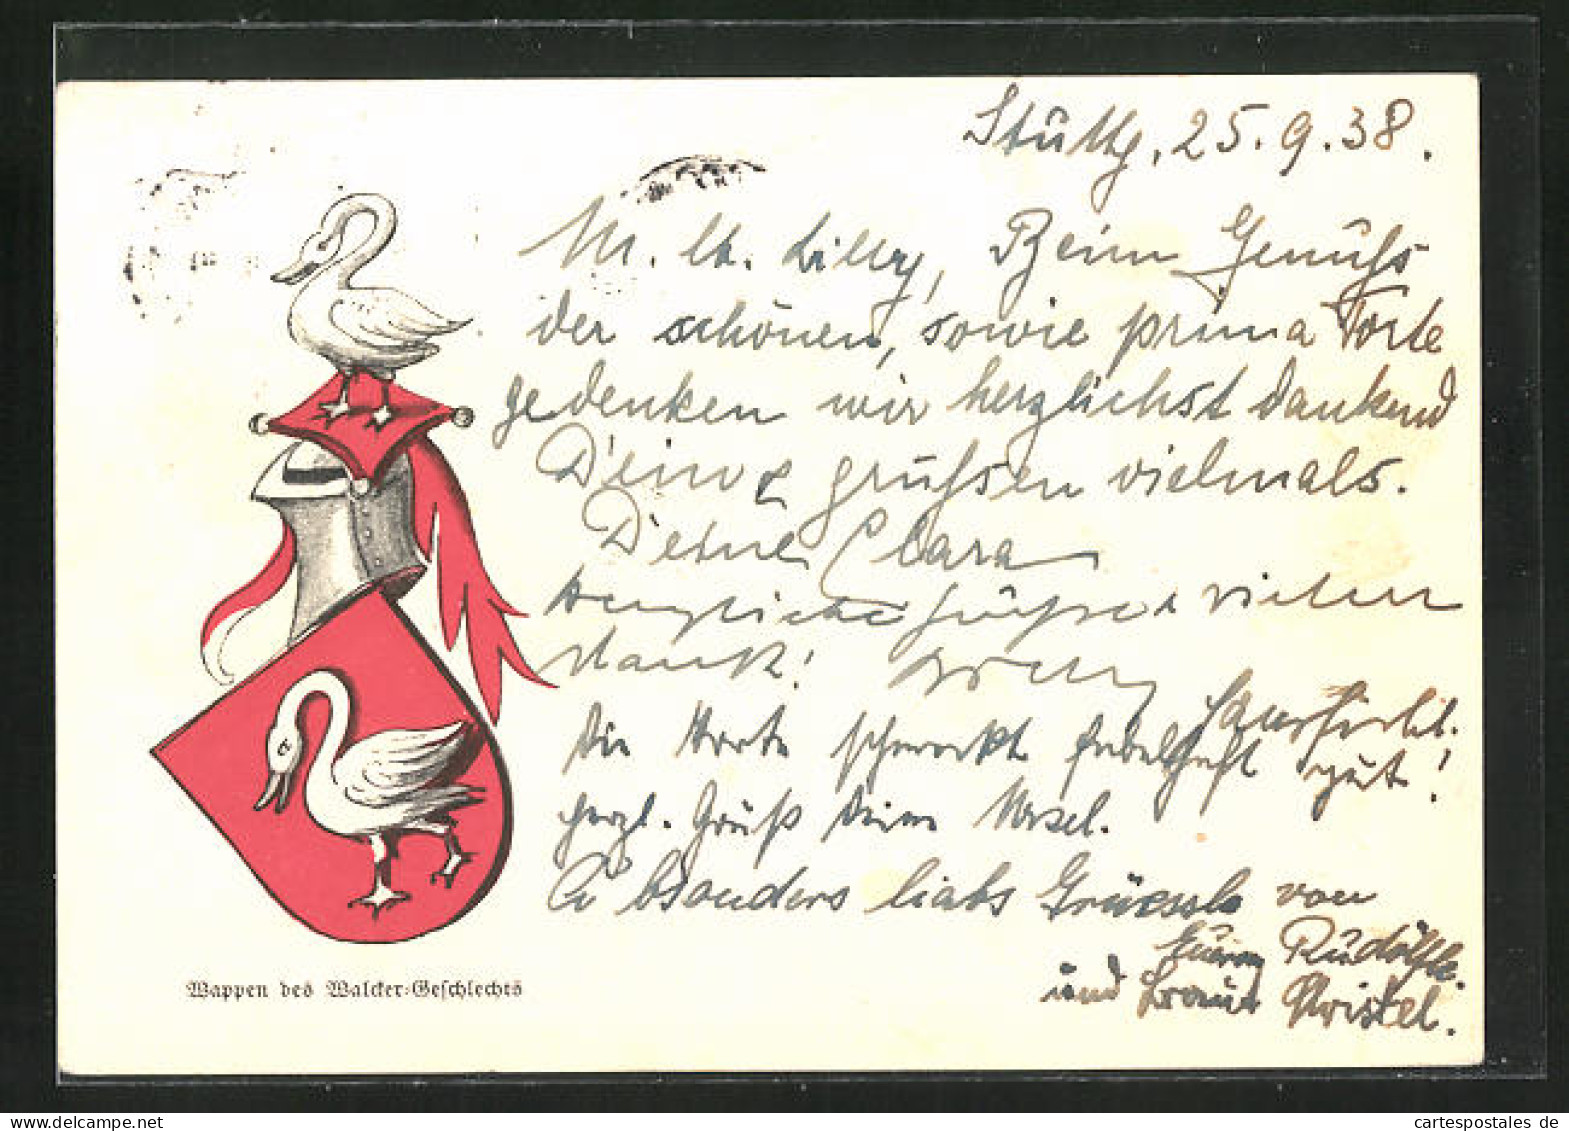 Stuttg, 25.9.38.
M. lb. Lilly, Beim Genuß
der schönen, sowie prima Torte
gedenken wir herzlichst dankend
Deiner grüßen vielmals.
Deine Clara
Herzliche Grüße vielen
dank!
Die Torte schmeckt fabelhaft gut!
herzl. Gruß Deine Ursel.
A bsonders liabs Grüessle von
Eurem Rudölfle.
und Eurer Christel.
Wappen des Walcker-Geschlechts
cartespostales de